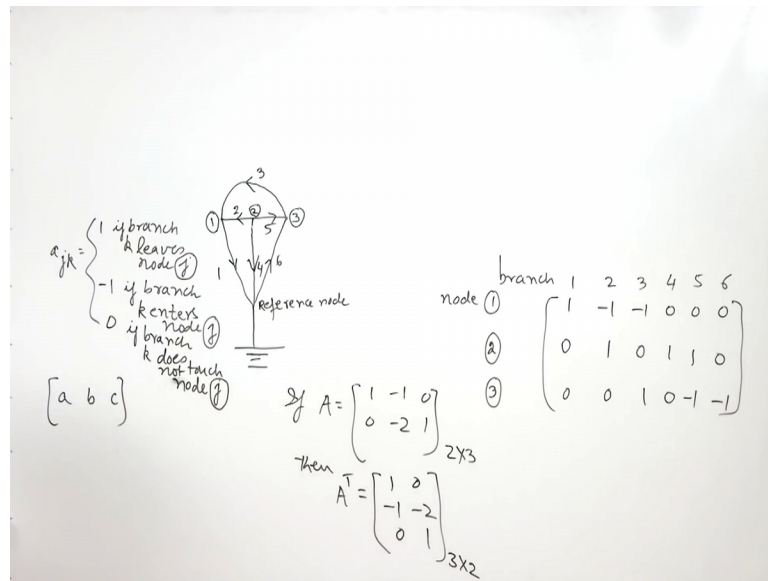 3
① 2 ② 5 ③
1 4 6
Reference node
a jk = { 1 if branch
k leaves
node ⓙ
-1 if branch
k enters
node ⓙ
0 if branch
k does
not touch
node ⓙ
[a b c]
If A = [1 -1 0
0 -2 1] 2X3
Then
A^T = [1 0
-1 -2
0 1] 3X2
branch 1 2 3 4 5 6
node ① 1 -1 -1 0 0 0
② 0 1 0 1 1 0
③ 0 0 1 0 -1 -1